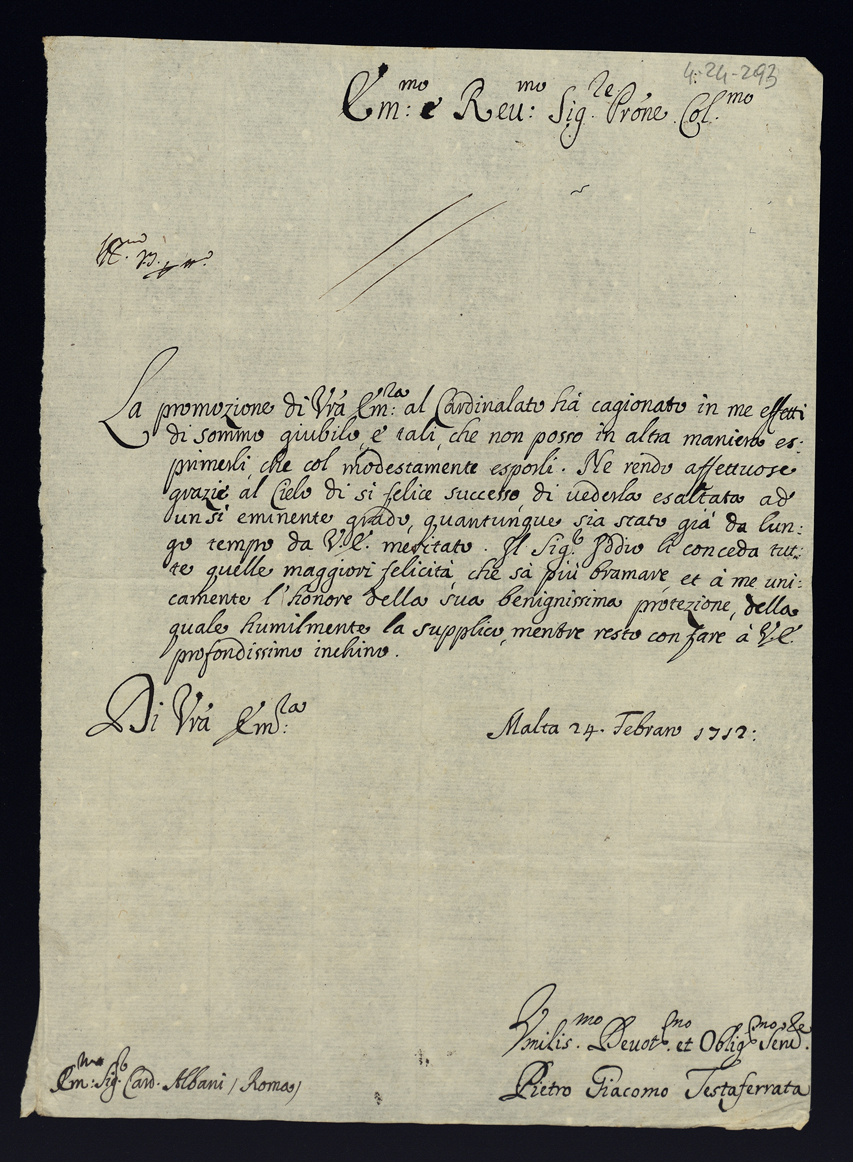 4-24-293
Em:mo e Reu:mo Sig.re Prône Col.mo
La promozione di Vrã Em:za al Cardinalato há cagionato in me effetti
di sommo giubilo, e tali, che non posso in altra maniera es:
primerli, che col modestamente esporli. Ne rendo affettuose
grazie al Cielo di si felice successo, di uederla esaltata ad
un si eminente grado, quantunque sia stato giá da lun:
go tempo da V.E. meritato. Il Sig.e Iddio le conceda tut:
te quelle maggiori felicità, che sà più bramare, et à me uni:
camente l'honore della sua benignissima protezione, della
quale humilmente la supplico, mentre resto con fare à V.E.
profondissimo inchino.
Di Vrã Em:za
Malta 24. Febraro 1712:
Vmilis.mo Deuot.mo et Oblig.mo Seru.re
Em:mo Sig.e Card. Albani / Roma /
Pietro Giacomo Testaferrata